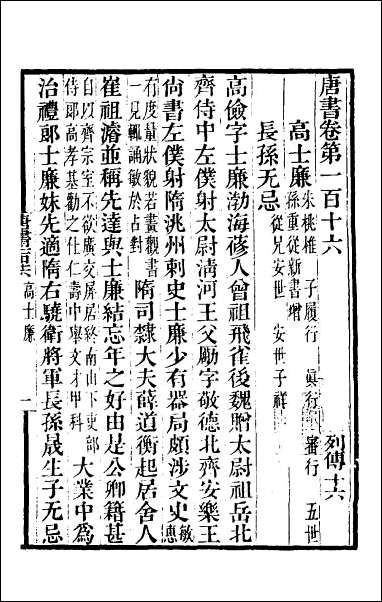 唐書卷第一百十六 列傳十六
高士廉 朱桃椎 子履行 眞行 審行 五世
孫重從新書增 從兄安世 安世子祥
長孫无忌
高儉字士廉渤海蓨人曾祖飛雀後魏贈太尉祖岳北
齊侍中左僕射太尉淸河王父勵字敬德北齊安樂王
尙書左僕射隋洮州刺史士廉少有器局頗涉文史敏惠
有度量狀貌若畫觀書
一見輒誦敏於占對 隋司隸大夫薛道衡起居舍人
崔祖濬並稱先達與士廉結忘年之好由是公卿籍甚
自以齊宗室不欲廣交屏居終南山下吏部
侍郎高孝基勸之仕仁壽中舉文才甲科 大業中爲
治禮郎士廉妹先適隋右驍衛將軍長孫晟生子无忌
高士廉 一